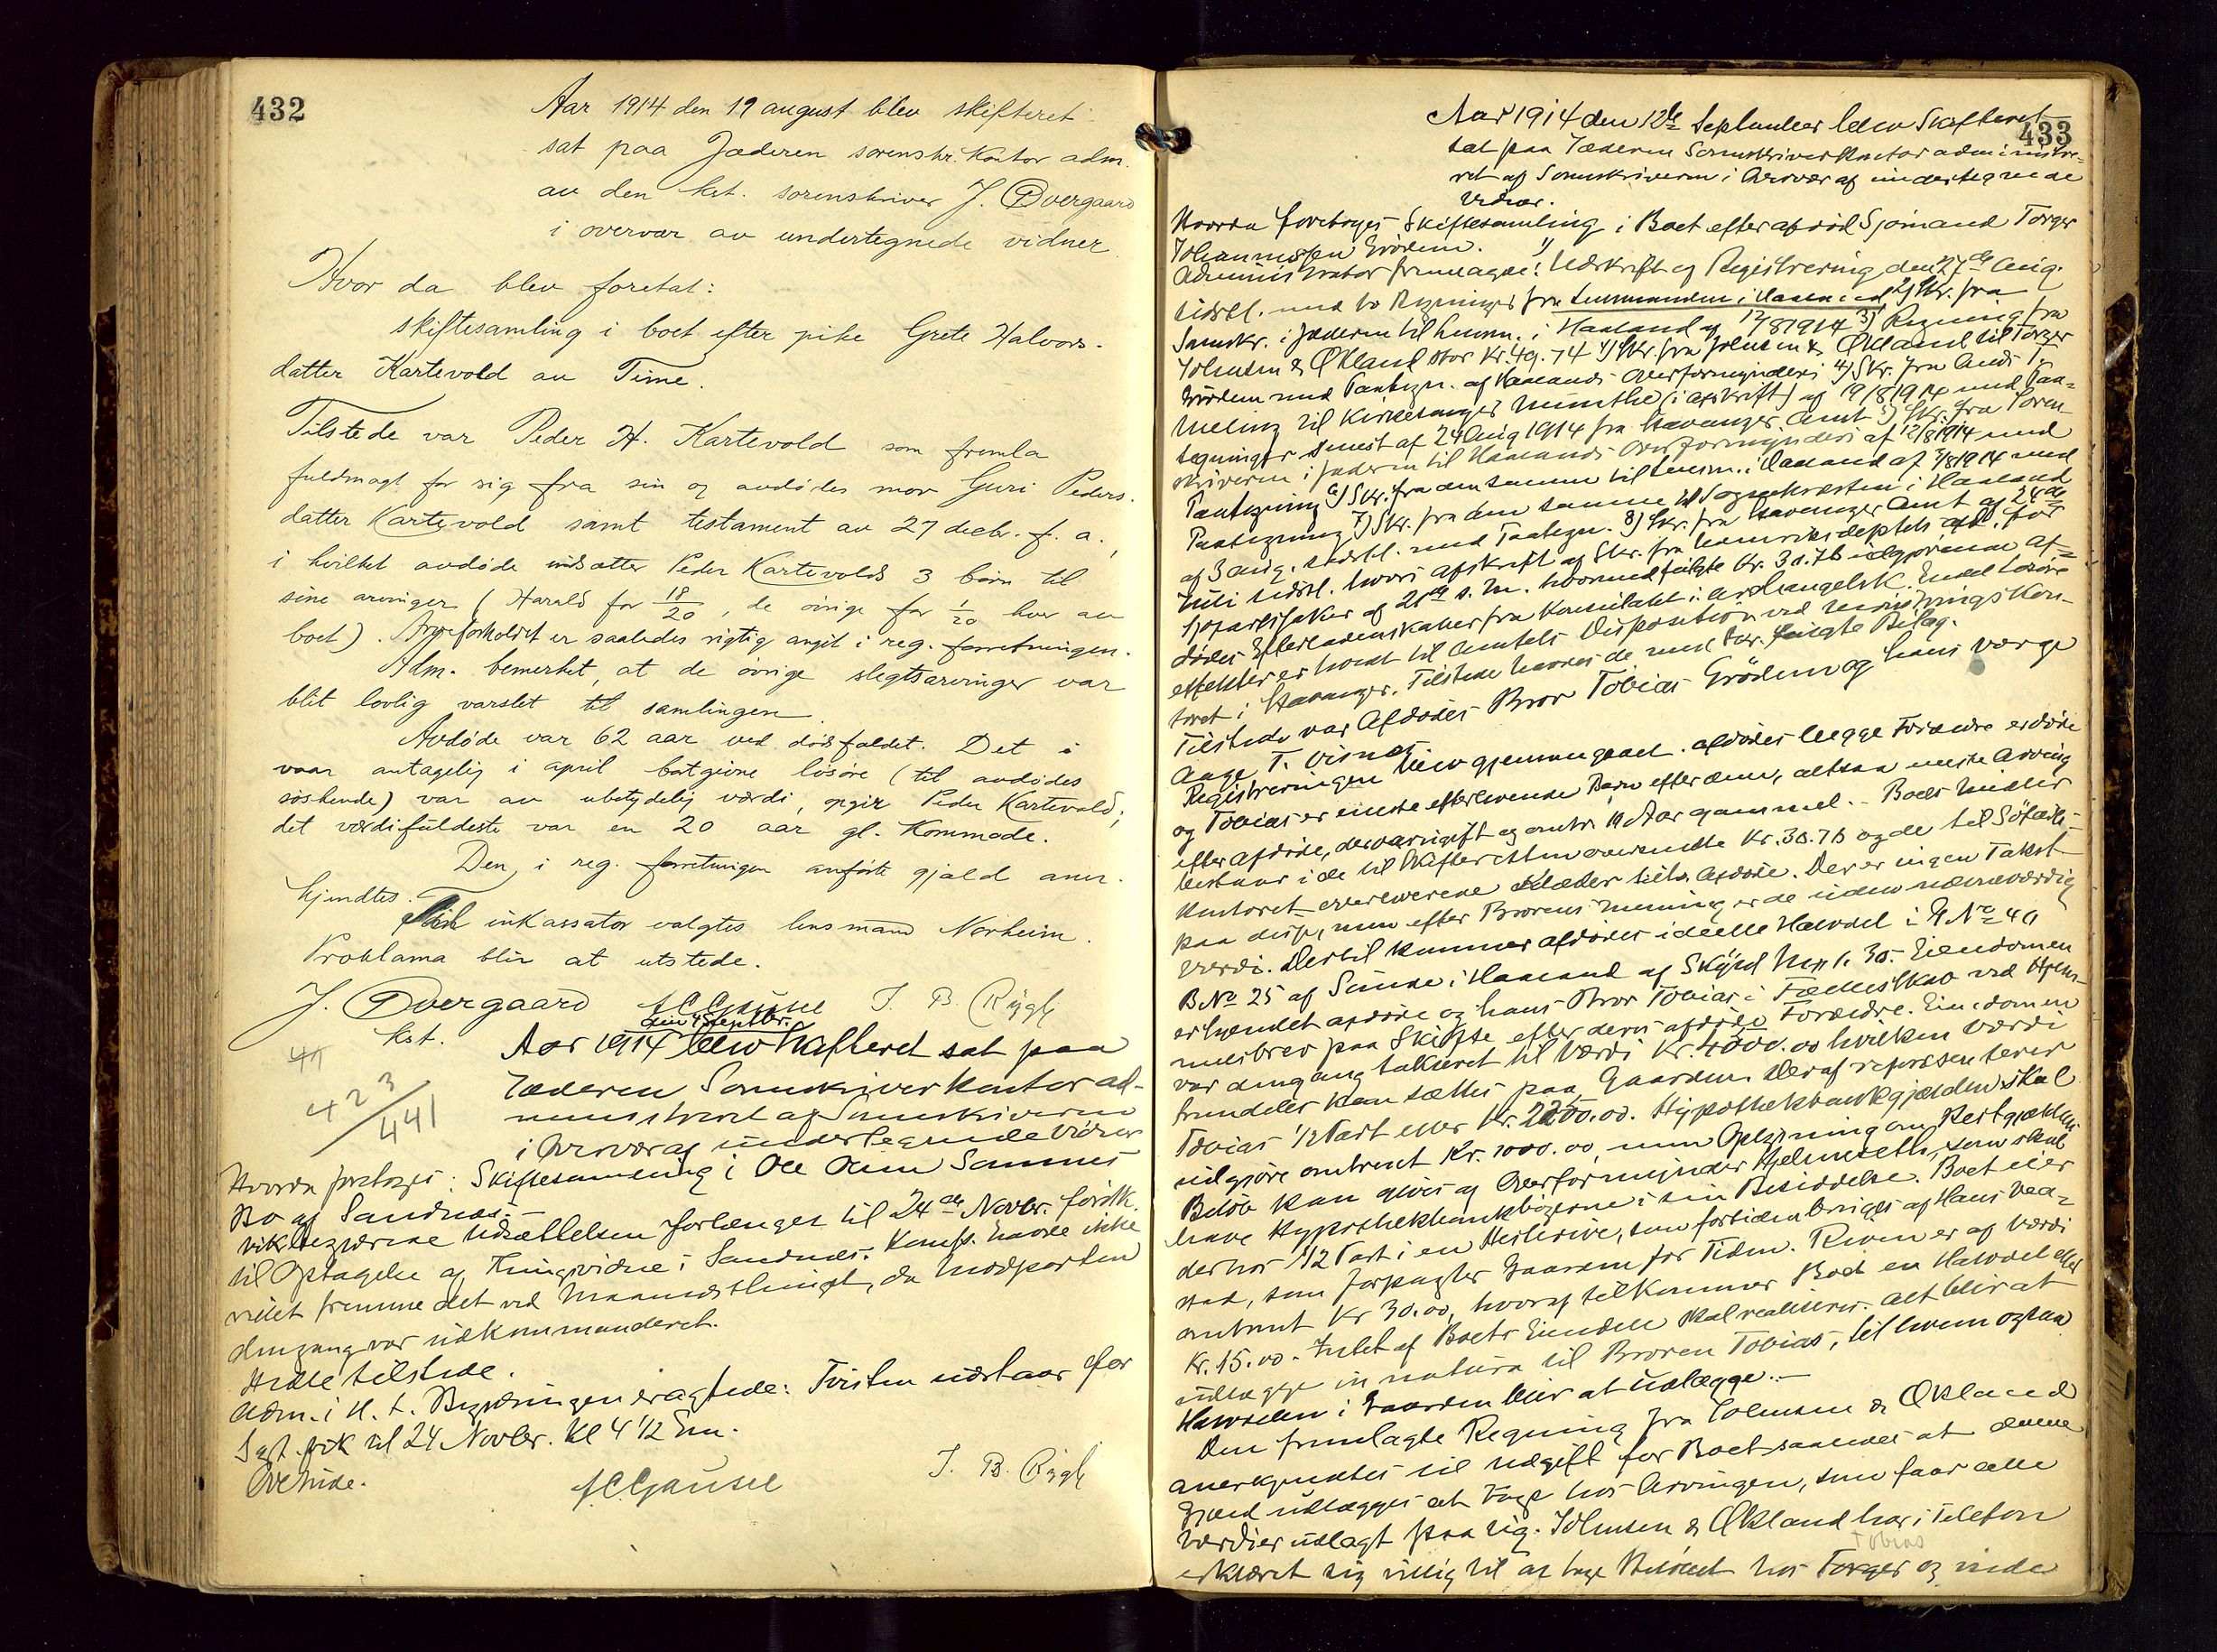 432
Aar 1914 den 19 august blev skifteret
sat paa Jæderen sorenskr. kontor adm.
av den kst. sorenskriver J. Overgaard
i overvær av undertegnede vidner
Hvor da blev foretat:
skiftesamling i boet efter pike Grete Halvors-
datter Kartevold av Time.
Tilstede var Peder H. Kartevold som fremla
fuldmagt for sig fra sin og avdødes mor Guri Peders-
datter Kartevold samt testament av 27 decbr. f. a.,
i hvilket avdøde indsætter Peder Kartevolds 3 børn til
sine arvinger (Harald for 18/20, de øvrige for 1/20 hver av
boet). Arveforholdet er saaledes rigtig angit i reg. forretningen.
Adm. bemerket, at de øvrige slegtsarvinger var
blit lovlig varslet til samlingen.
Avdøde var 62 aar ved dødsfaldet. Det i
vaar antagelig i april bortgivne løsøre (til avdødes
søskende) var av ubetydelig værdi, opgir Peder Kartevold;
det værdifuldeste var en 20 aar gl. kommode.
Den i reg. forretningen anførte gjæld aner-
kjendtes.
Til inkassator valgtes lensmand Norheim.
Proklama blir at utstede.
J. Overgaard A C Gausel T. B. Rygh
kst.
den 4 Septbr.
Aar 1914 blev Skifteret sat paa
Jæderen Sorenskriverkontor ad-
ministreret af Sorenskriveren
i Overvær af undertegnede Vidner
423/441
Hvorda foretoges: Skiftesamling i Ole Olsen Somnes
Bo af Sandnæs.-
vik begjærede Udsættelsen forlænget til 24de Novbr. førstk.
til Optagelse af Thingsvidne i Sandnæs. Komp. havde ikke
villet fremme det ved Maanedsthinget, da Modparten
dengang var udkommanderet.
Heller tilstede.
Adm. i H. t. Begjæringen eragtede: Fristen udstaar for
Sgf. vik til 24 Novbr. Kl 4 1/2 Em.
Ovenide.
A C Gausel T. B. Rygh
433
Aar 1914 den 12te September blev Skifteret
sat paa Jæderen Sorenskriverkontor administre-
ret af Sorenskriveren i Overvær af undertegnede
Vidner.
Hvorda foretoges Skiftesamling i Boet efter afdød Sjømand Torger
Johannessen Grødem.
Administrator fremlagde: 1) Udskrift af Registrering den 27de Aug.
sidstl. med to Regninger fra Lensmanden i Haaland 2) Skr. fra
Sorenskr. i Jæderen til Lensm. i Haaland af 12/8 1914 3) Regning fra
Johnsen & Økland stor Kr. 49.74 4) Skr. fra Johnsen & Økland til Torger
Grødem med Paategn. af Haalands Overformynderi 4) Skr. fra Ands T.
Meling til Kirkesanger Munthe (i Afskrift) af 19/8 1914 med Paa-
tegninger senest af 24 Aug 1914 fra Stavanger Amt 5) Skr. fra Soren-
skriveren i Jæderen til Haalands Overformynderi af 12/8 1914 med
Paategning 6) Skr. fra den samme til Lensm. i Haaland af 3/8 1914 med
Paategning 7) Skr. fra den samme til Sognepræsten i Haaland
af 3 Aug. sidstl. med Paategn. 8) Skr. fra Stavanger Amt af 24de
Juli sidstl. hvori Afskrift af Skr. fra Udenriksdeptets afd. for
Sjøfartssaker af 21de s. M. hvormed fulgte Kr. 30.76 udgjørende Af-
dødes Efterladenskaber fra Konsulatet i Archangelsk. Endel Løsøre
effekter er henst. til Amtets Disposition ved Mønstringskon-
toret i Stavanger. Tilstede havdes de med Skr. fulgte Bilag.
Tilstede var Afdødes Bror Tobias Grødem og hans Værge
Aage T. Visnæs
Registreringen blev gjennemgaaet. Afdødes begge Forældre er døde
og Tobias er eneste efterlevende Barn efter dem, altsaa eneste Arving
efter Afdøde, der var ugift og omtr. 19 Aar gammel. - Boets Midler
bestaar i de til Skifteretten oversendte Kr. 30.76 og de til Sjøfarts-
kontoret overleverede Klæder tilh. Afdøde. Der er ingen Takst
paa disse, men efter Brorens Mening er de uden nævneværdig
Værdi. Dertil kommer Afdødes ideelle Halvdel i G No 49
B No 25 af Sunde i Haaland af Skyld Mk 1.30. Eiendommen
er hjemlet Afdøde og hans Bror Tobias i Fællesskab ved Hjem-
melsbrev paa Skifte efter deres afdøde Forældre. Eiendommen
var dengang takseret til Værdi Kr. 4500.00 hvilken Værdi
fremdeles kan sættes paa Gaarden. Deraf repræsenterer
Tobias 1/2 Part eller Kr. 2250.00. Hypothekbankgjælden skal
udgjøre omtrent Kr. 1000.00, men Oplysning om Restgjældens
Beløb kan gives af Overformynder Hjelmseth, som skal
have Hypothekbankbøgerne i sin Besiddelse. Boet eier
derhos 1/2 Part i en Hesterive, som fortiden bruges af Hans Vea-
stad, som forpagter Gaarden for Tiden. Riven er af Værdi
omtrent Kr 30.00, hvoraf tilkommer Boet en Halvdel eller
Kr. 15.00. Intet af Boets Eiendele skal realiseres. Alt blir at
udlægge in natura til Broren Tobias, til hvem ogsaa
Halvdelen i Gaarden blir at udlægge.-
Den fremlagte Regning fra Johnsen & Økland
anerkjendtes til Udgift for Boet saaledes at denne
Gjæld udlægges at tage hos Arvingen, som faar alle
Værdier udlagt paa sig. Johnsen & Økland har i Telefon
Tobias
erklæret sig villig til at tage Beløbet hos Torger og inde